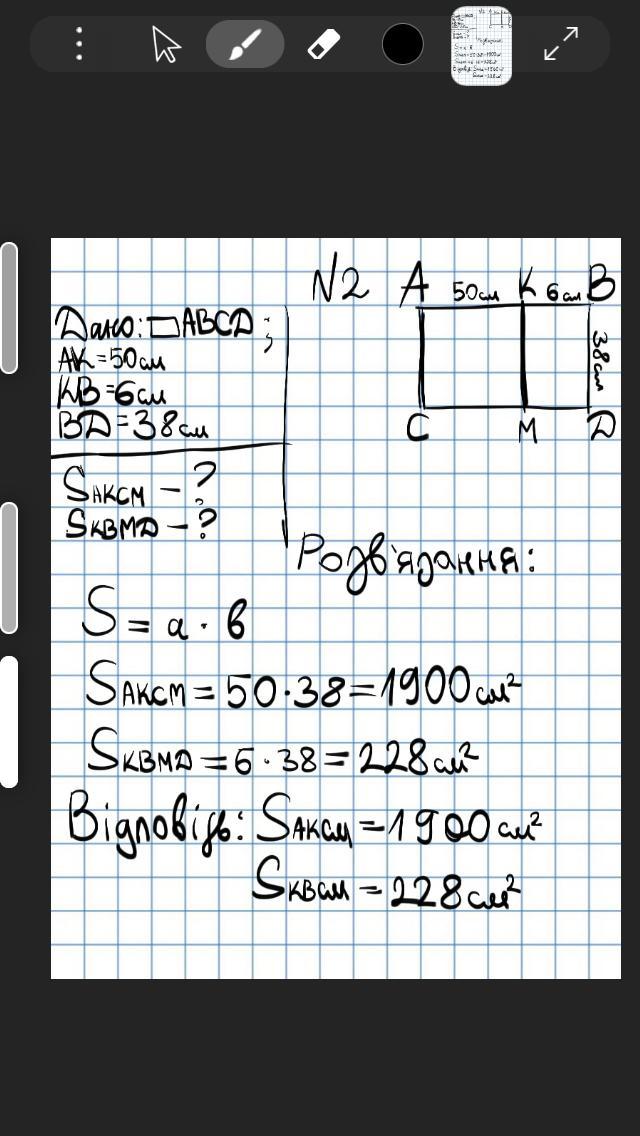 N2
A 50см K 6см B
38см
C M D
Дано: ▭ABCD;
AK=50см
KB=6см
BD=38см
SAKCM – ?
SKBMD – ?
Розв'язання:
S = a · b
SAKCM = 50·38=1900см²
SKBMD = 6·38=228см²
Відповідь: SAKCM =1900см²
SKBCM = 228см²